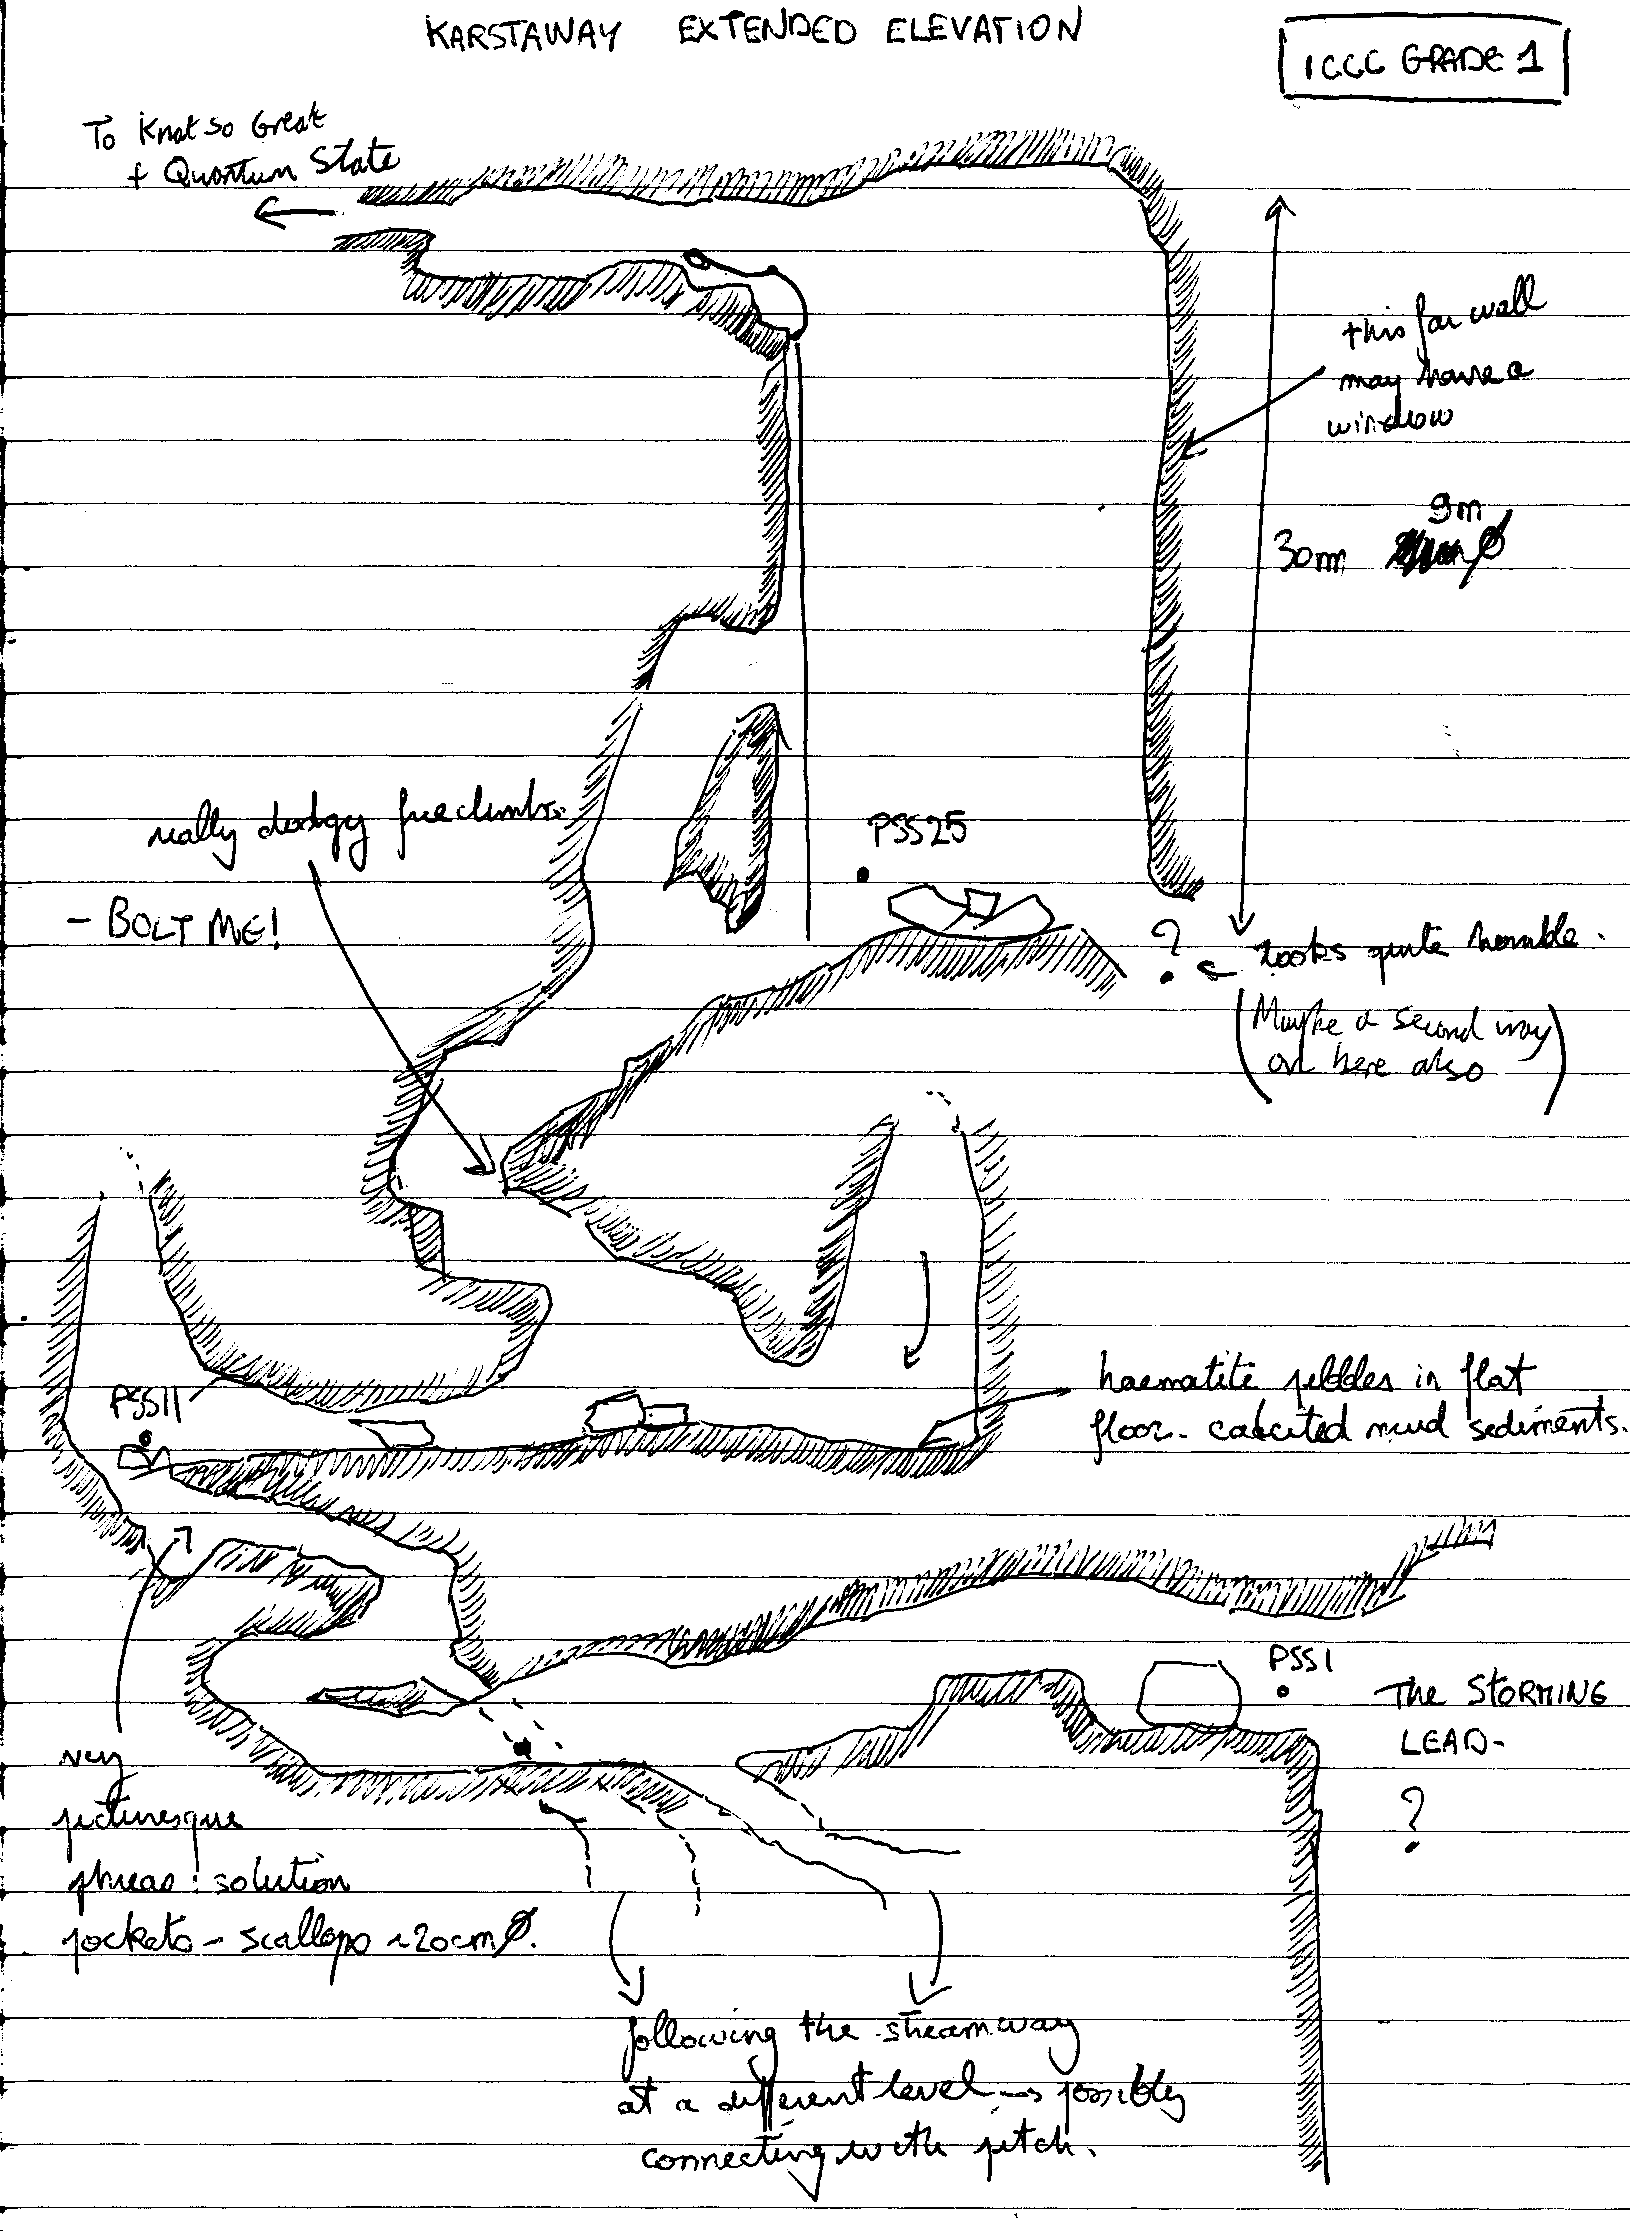 KARSTAWAY EXTENDED ELEVATION
ICCC GRADE 1
To Knot so Great
+ Quantum State
this far wall
may have a
window
9m
30m ø
really dodgy free climbs
- BOLT ME!
PSS25
?
Looks quite horrible.
(Maybe a second way
on here also)
PSS11
haematite pebbles in flat
floor. calcited mud sediments.
PSS1
The STORMING
LEAD-
?
very
picturesque
phreas: solution
pockets - scallops ~20cm ø.
following the streamway
at a different level → possibly
connecting with pitch.